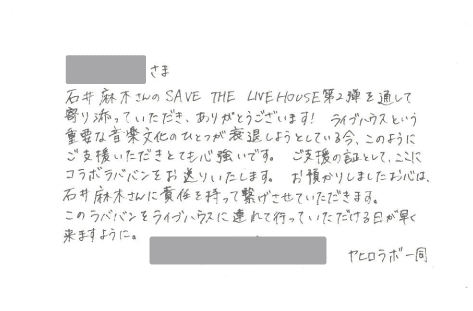 さま
石井麻木さんのSAVE THE LIVEHOUSE第2弾を通して
寄り添っていただき、ありがとうございます! ライブハウスという
重要な音楽文化のひとつが衰退しようとしている今、このように
ご支援いただきとても心強いです。 ご支援の証として、ここに
コラボラババンをお送りいたします。 お預かりしましたお心は、
石井麻木さんに責任を持って繋げさせていただきます。
このラババンをライブハウスに連れて行っていただける日が早く
来ますように。
ヤヒロラボ一同